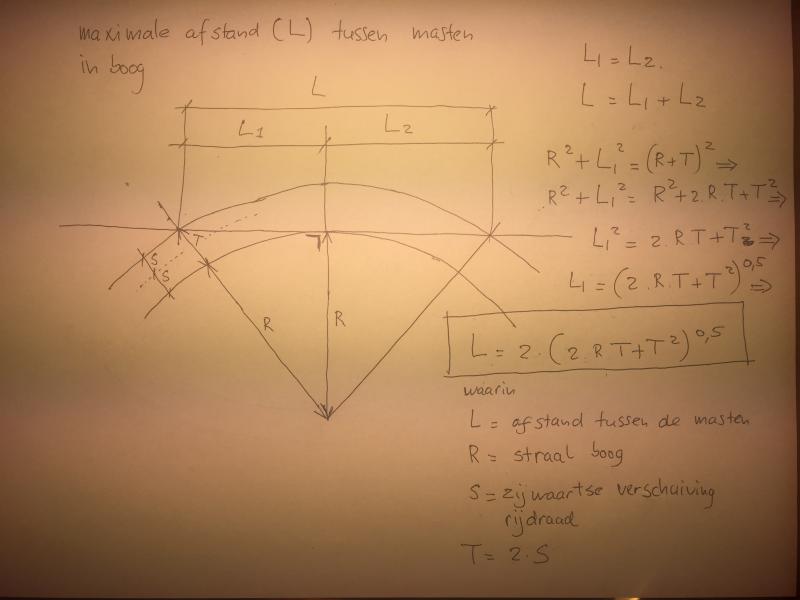 maximale afstand (L) tussen masten
in boog
L
L1
L2
T
S
S
R
R
L1 = L2.
L = L1 + L2
R² + L1² = (R+T)² ⇒
R² + L1² = R² + 2.R.T + T² ⇒
L1² = 2.R.T + T² ⇒
L1 = (2.R.T + T²)^0,5 ⇒
L = 2.(2.R.T + T²)^0,5
waarin
L = afstand tussen de masten
R = straal boog
S = zijwaartse verschuiving
rijdraad
T = 2.S